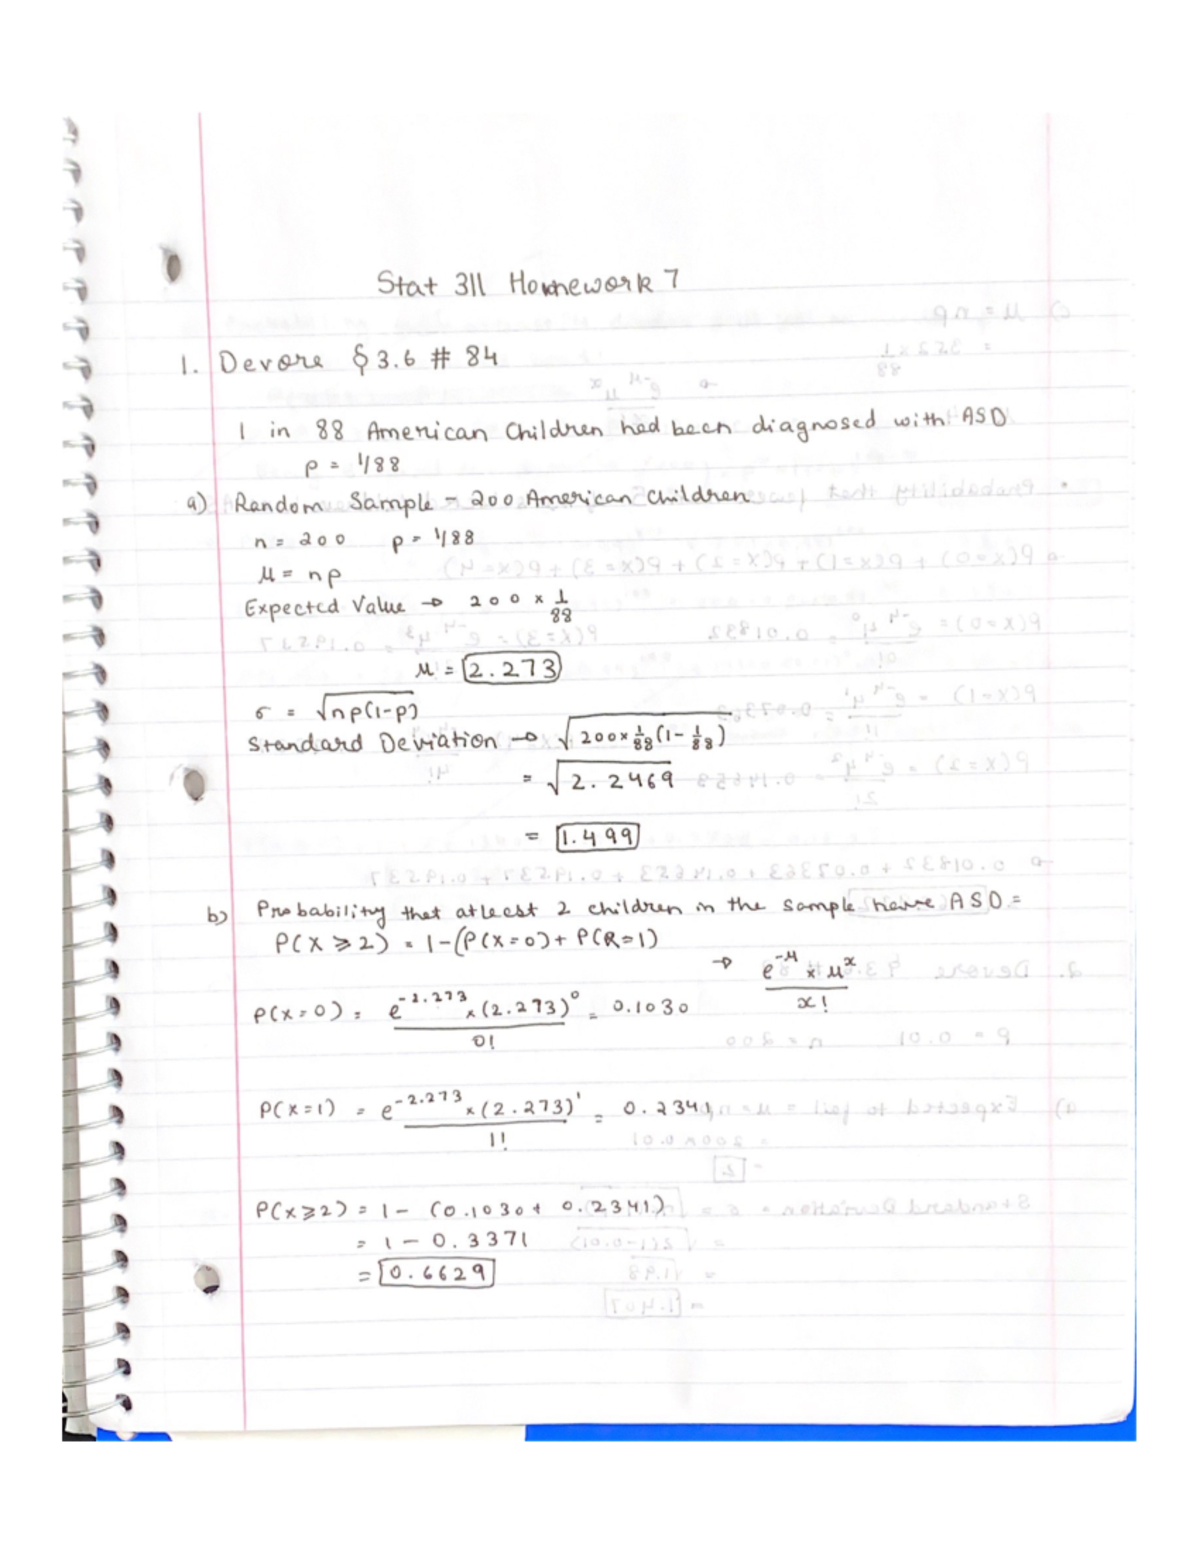 Stat 311 Homework 7
1. Devore § 3.6 # 84
1 in 88 American Children had been diagnosed with ASD
p = 1/88
a) Random Sample - 200 American Children
n = 200 p = 1/88
μ = np
Expected Value → 200 × 1/88
μ = 2.273
σ = √np(1-p)
Standard Deviation → √200×1/88(1-1/88)
= √2.2469
= 1.499
b) Probability that atleast 2 children in the sample have ASD =
P(X ⩾ 2) = 1-(P(X=0)+ P(R=1)
→ e^-μ × μ^x / x!
P(X=0) = e^-2.273 × (2.273)^0 / 0! = 0.1030
P(X=1) = e^-2.273 × (2.273)^1 / 1! = 0.2341
P(X⩾2) = 1 - (0.1030+ 0.2341)
= 1 - 0.3371
= 0.6629